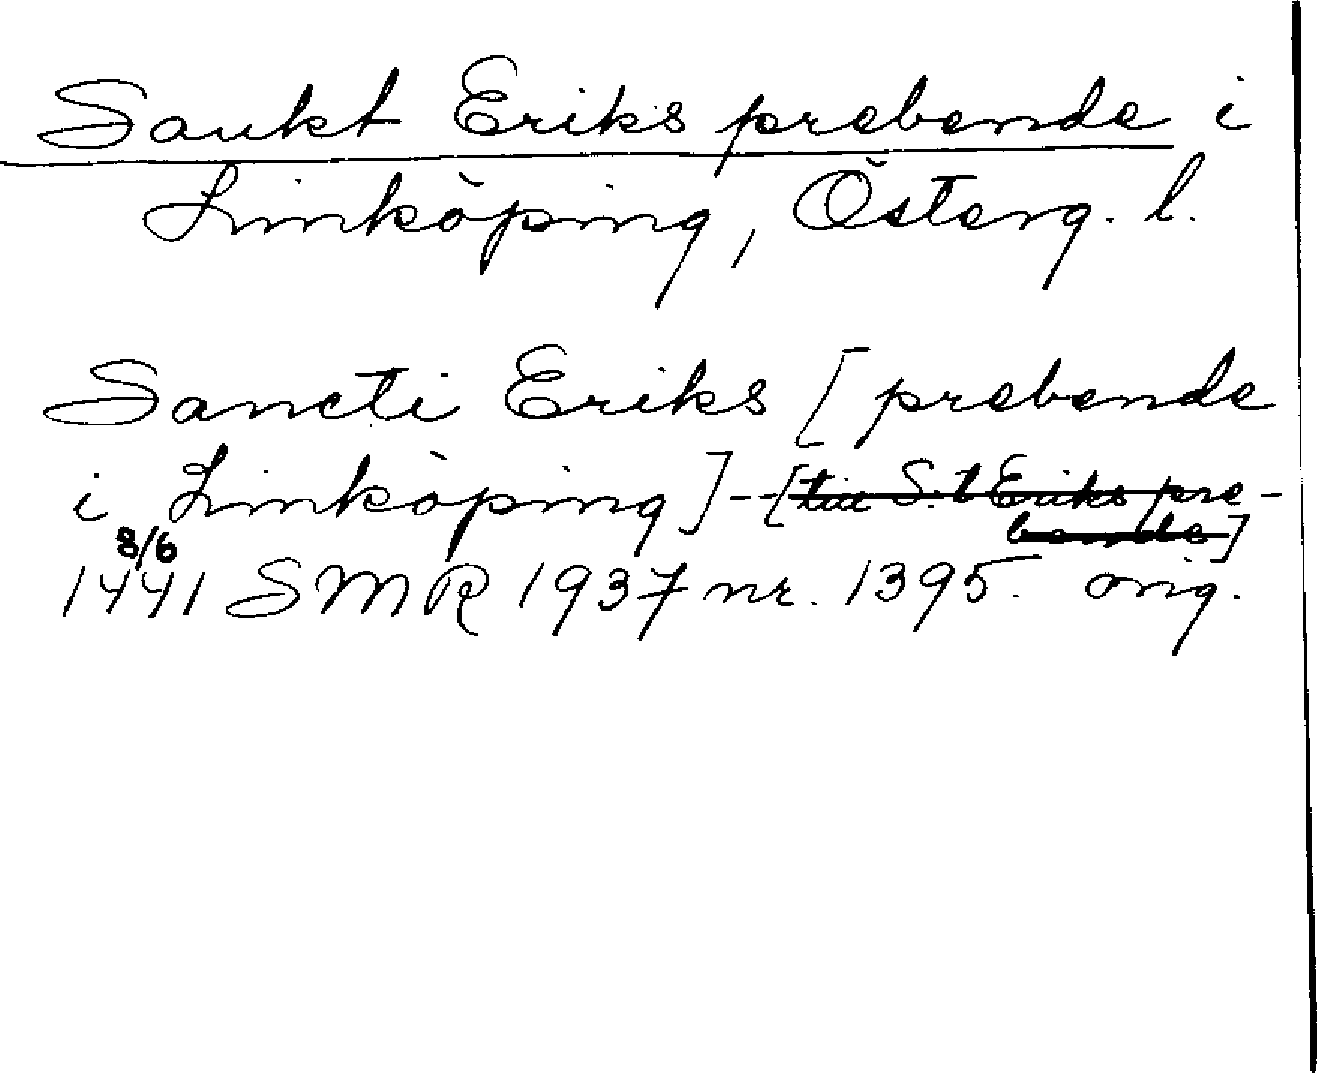 Sankt Eriks prebende i
Linköping, Österg. l.
Sancti Eriks [prebende
i Linköping] - [till S:t Eriks pre-
bende]
8/6
1441 SMR 1937 nr. 1395. orig.